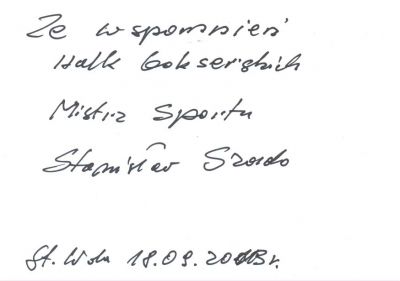 Ze wspomnień
walk bokserskich
Mistrz Sportu
Stanisław
St. Wola 18.09.2013 r.